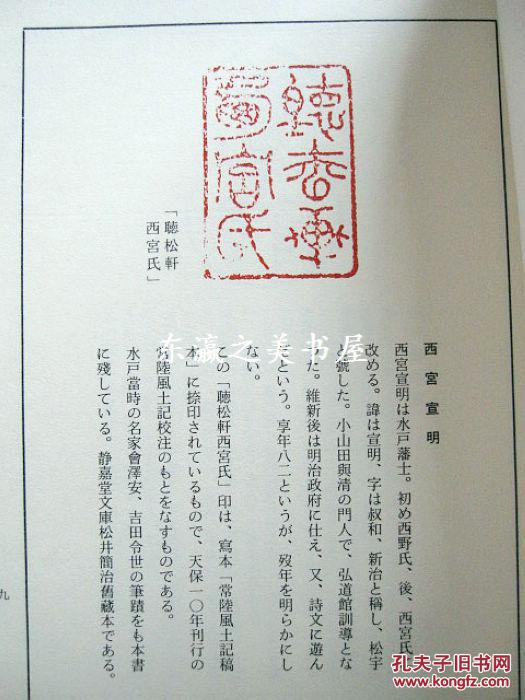 聽松軒
西宮氏
「聽松軒
西宮氏」
西宮宣明
西宮宣明は水戸藩士。初め西野氏、後、西宮氏
改める。諱は宣明、字は叔和、新治と稱し、松宇
と號した。小山田與清の門人で、弘道館訓導とな
った。維新後は明治政府に仕え、又、詩文に遊ん
だという。享年八二というが、歿年を明らかにし
ない。
この「聽松軒西宮氏」印は、寫本「常陸風土記稿
本」に捺印されているもので、天保一〇年刊行の
常陸風土記校注のもとをなすものである。
水戸當時の名家會澤安、吉田令世の筆蹟をも本書
に殘している。静嘉堂文庫松井簡治舊藏本である。
九
东瀛之美书屋
孔夫子旧书网
kongfz.com